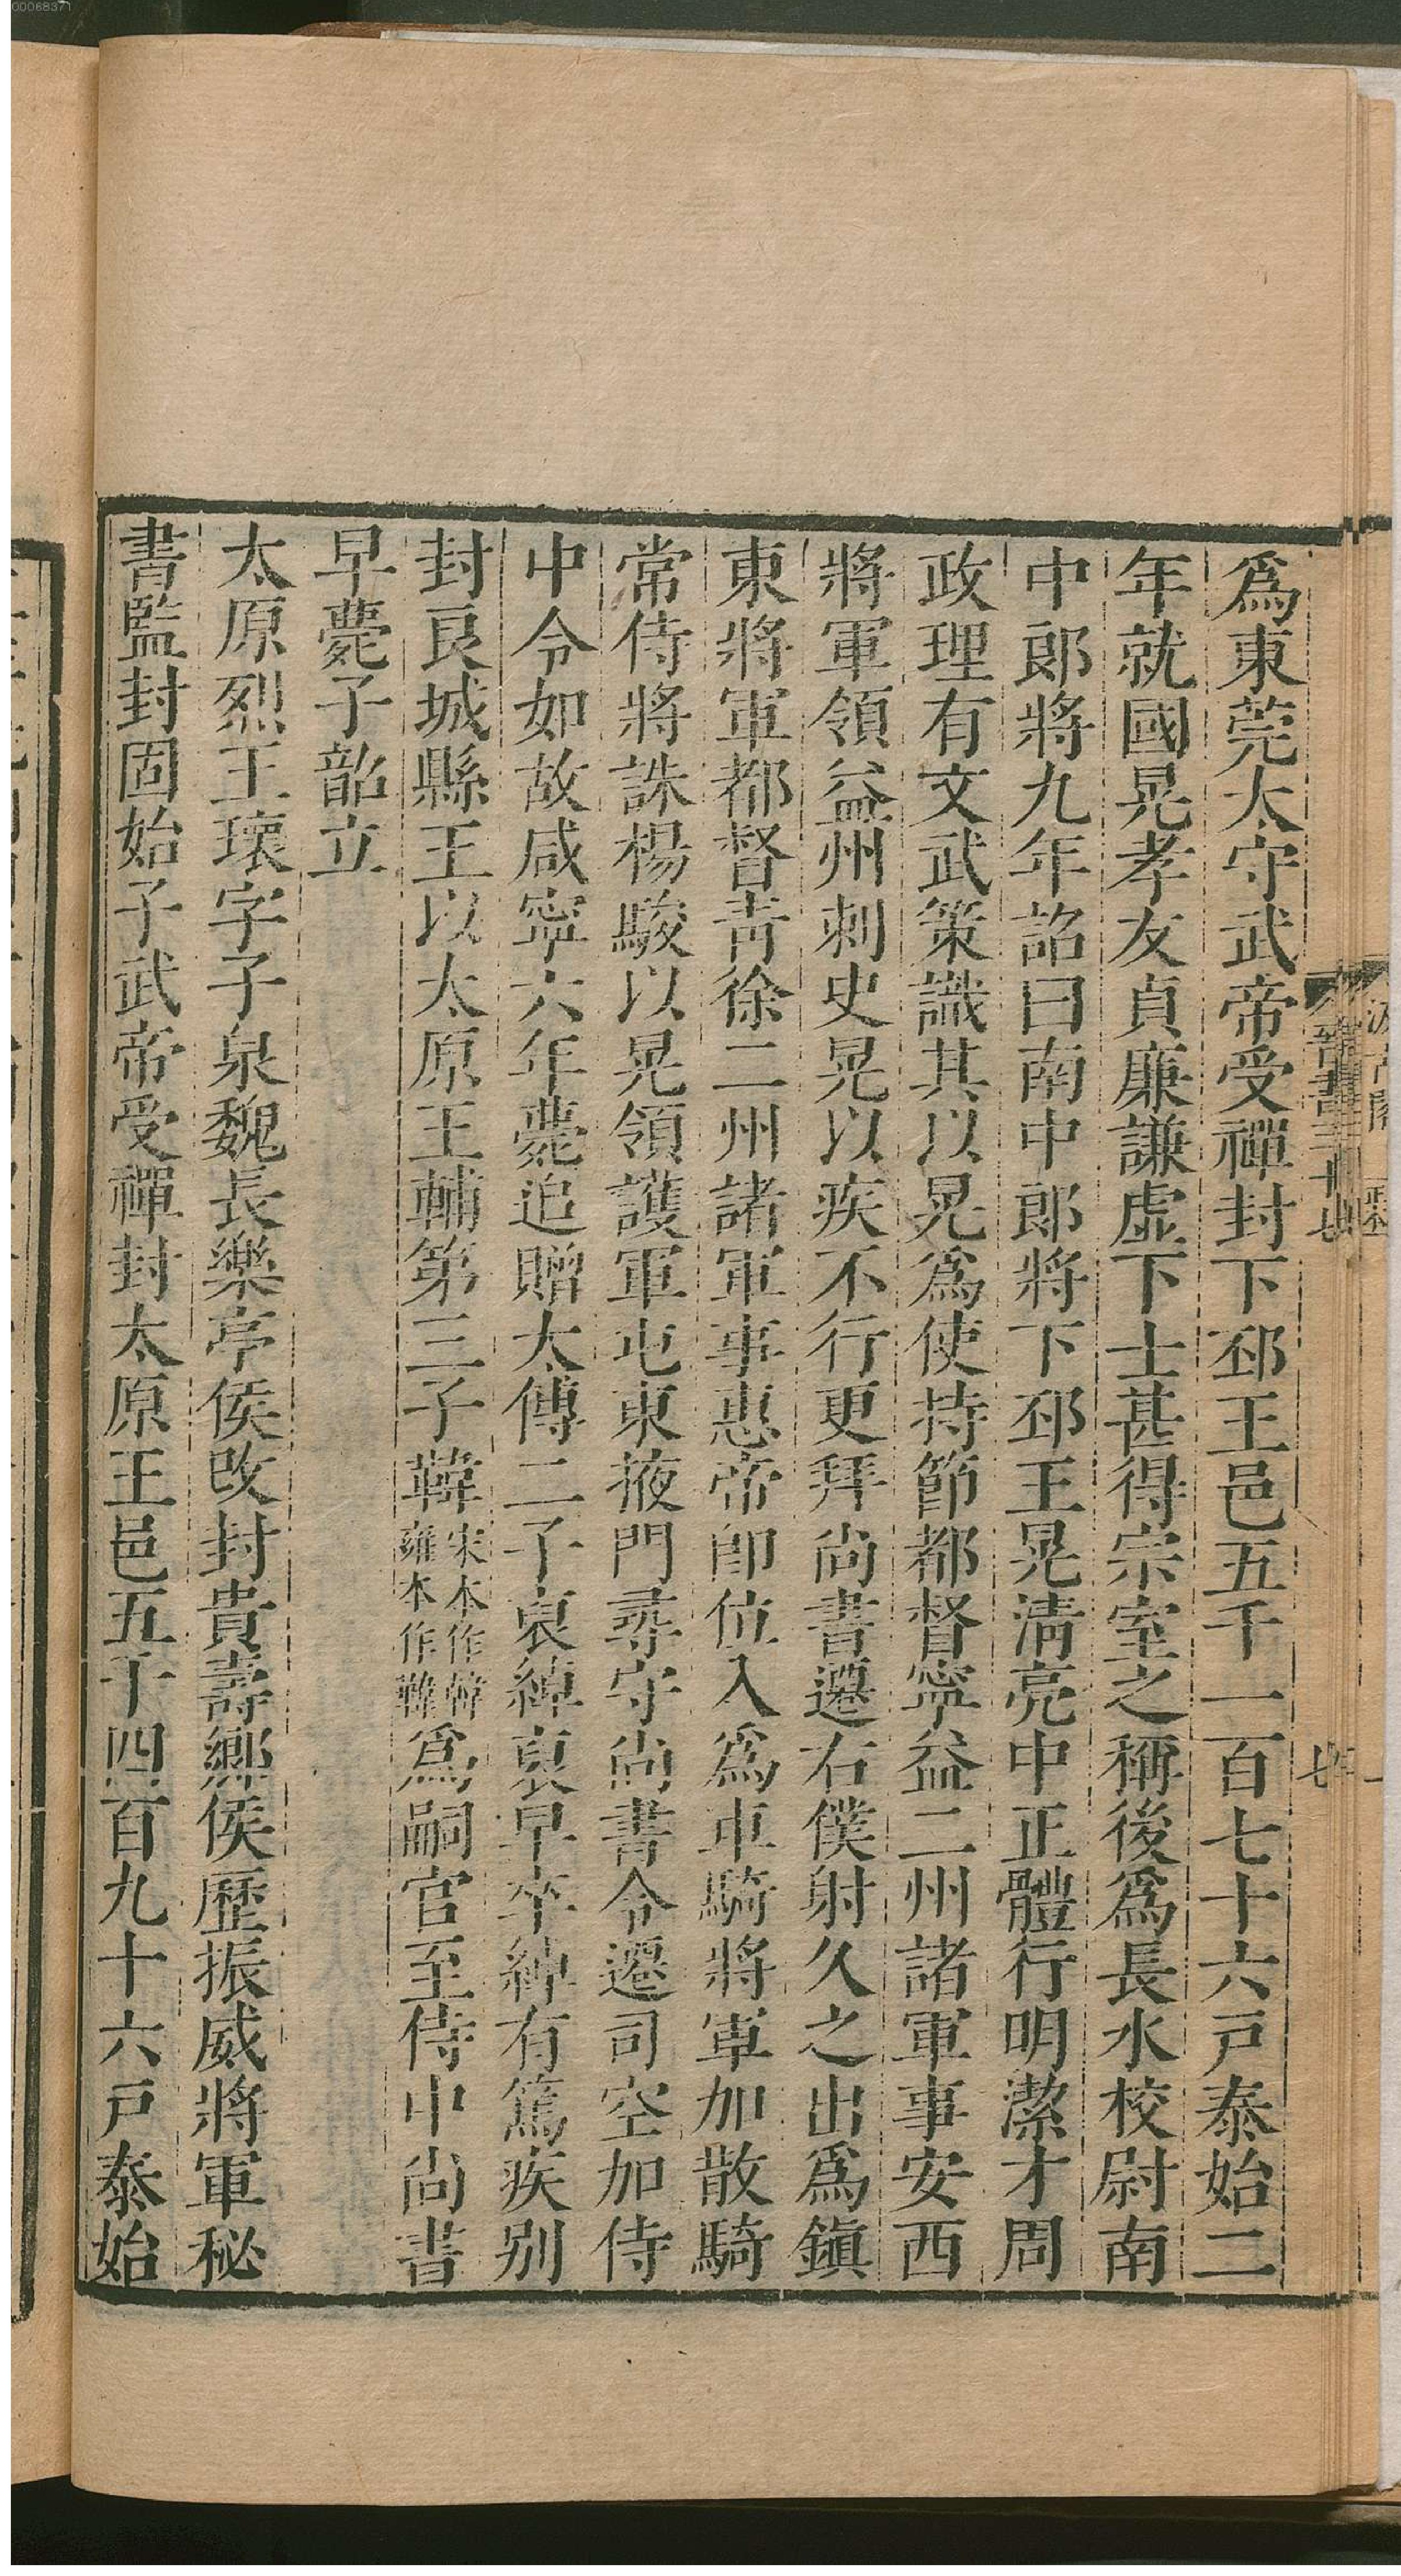 00068371
爲東莞太守武帝受禪封下邳王邑五千一百七十六戸泰始二
年就國晃孝友貞廉謙虚下士甚得宗室之稱後爲長水校尉南
中郎將九年詔曰南中郎將下邳王晃清亮中正體行明潔才周
政理有文武策識其以晃爲使持節都督寧益二州諸軍事安西
將軍領益州刺史晃以疾不行更拜尚書遷右僕射久之出爲鎭
東將軍都督青徐二州諸軍事惠帝即位入爲車騎將軍加散騎
常侍將誅楊駿以晃領護軍屯東掖門尋守尚書令遷司空加侍
中令如故咸寧六年薨追贈太傅二子裒綽裒早卒綽有篤疾别
封良城縣王以太原王輔第三子韡宋本作韓雍本作韡爲嗣官至侍中尚書
早薨子韶立
太原烈王瓌字子泉魏長樂亭侯改封貴壽鄉侯歷振威將軍秘
書監封固始子武帝受禪封太原王邑五千四百九十六戸泰始
晉書三十七
七
汲古閣